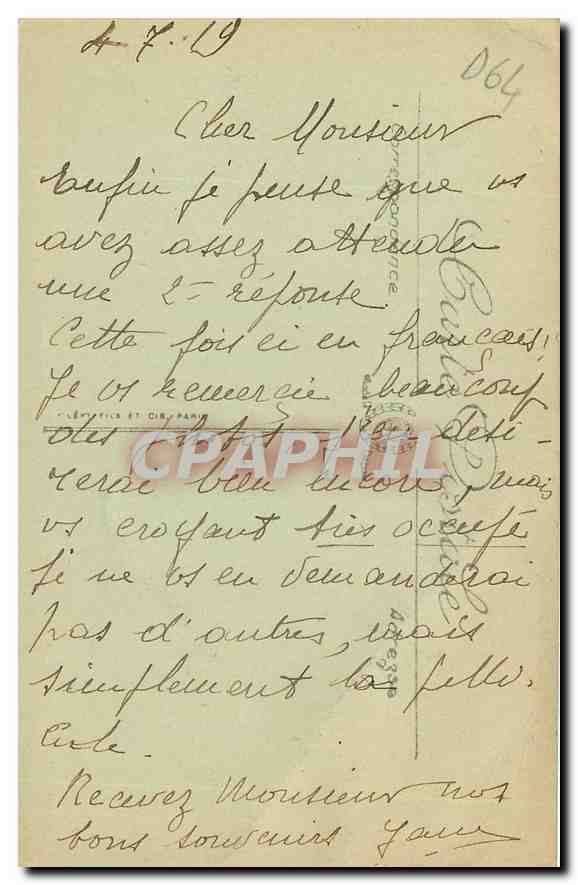 4 7. 19
D64
Cher Monsieur
Enfin je pense que vs
avez assez attendu
une 2- réponse.
Cette fois ci en francais!
Je vs remercie beaucoup
LÉVY FILS ET CIE, PARIS
des photos j'en dési-
rerai bien encore, mais
vs croyant très occupé
je ne vs en demanderai
pas d'autres, mais
simplement la pelli-
cule.
Recevez Monsieur nos
bons souvenirs
Correspondance
Carte Postale
Adresse
CPAPHIL